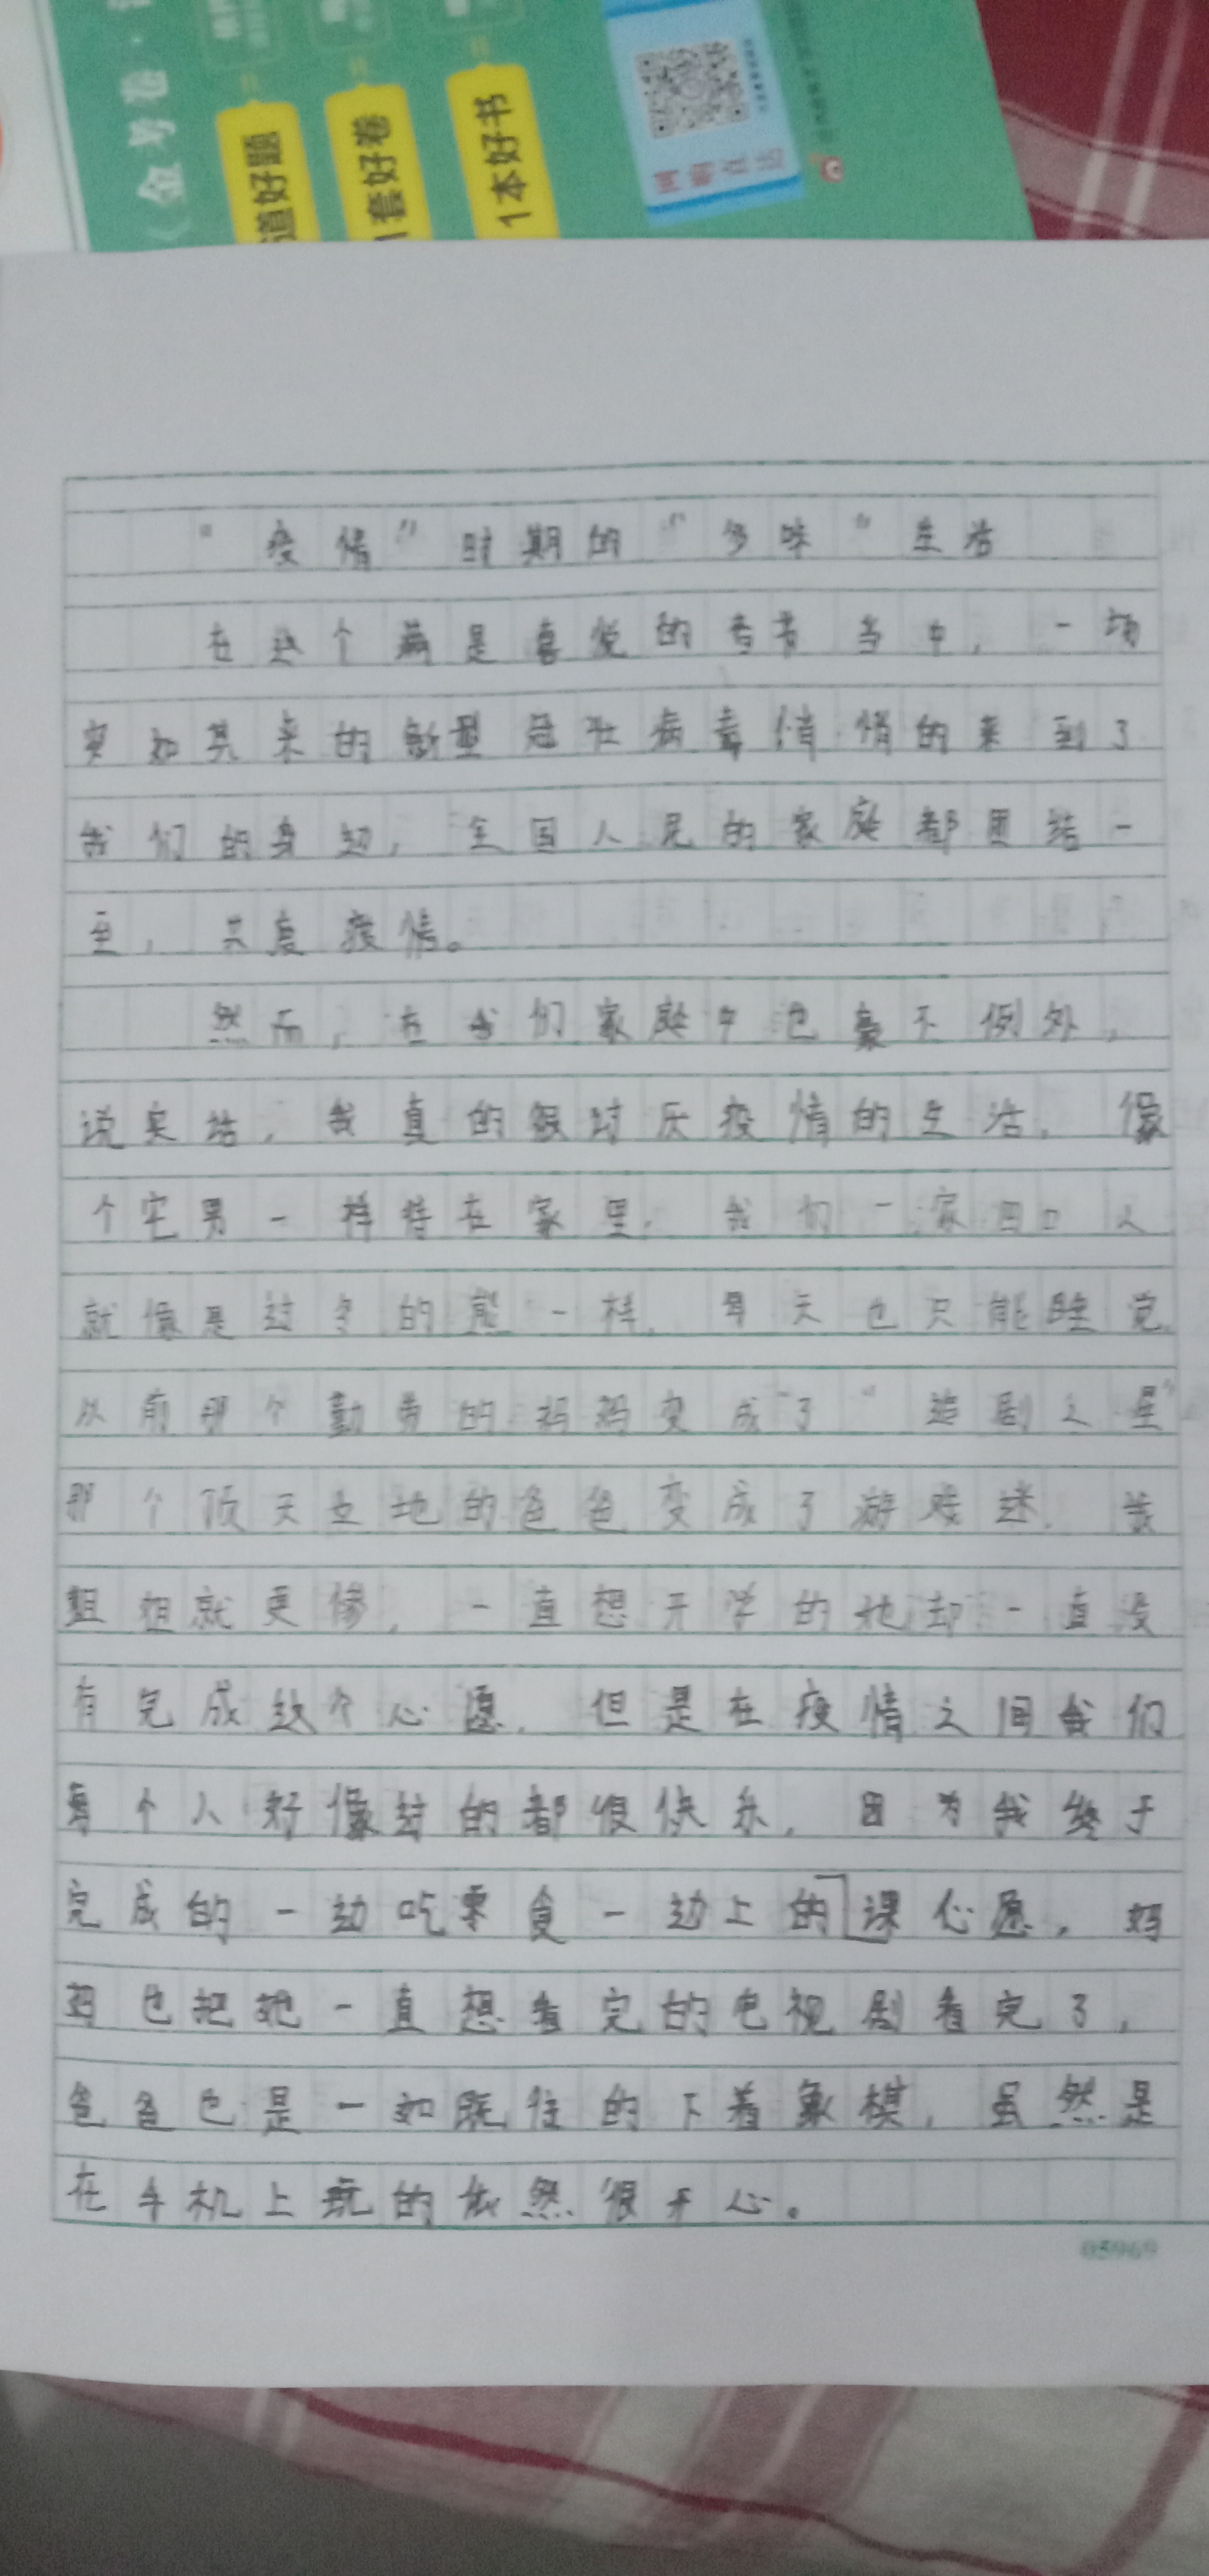 《金考卷
道好题
套好卷
1本好书
“疫情”时期的“多味”生活
在这个满是喜悦的春节当中，一场
突如其来的新型冠壮病毒悄悄的来到了
我们的身边，全国人民的家庭都团结一
至，共度疫情。
然而，在我们家庭中也豪不例外，
说实话，我真的很讨厌疫情的生活，像
个宅男一样待在家里，我们一家四口人
就像是过冬的熊一样，每天也只能睡觉
从前那个勤劳的妈妈变成了“追剧之星”
那个顶天立地的爸爸变成了游戏迷，我
姐姐就更惨，一直想开学的她却一直没
有完成这个心愿，但是在疫情之间我们
每个人好像过的都很快乐，因为我终于
完成的一边吃零食一边上的课心愿，妈
妈也把她一直想看完的电视剧看完了，
爸爸也是一如既往的下着象棋，虽然是
在手机上玩的依然很开心。
05969